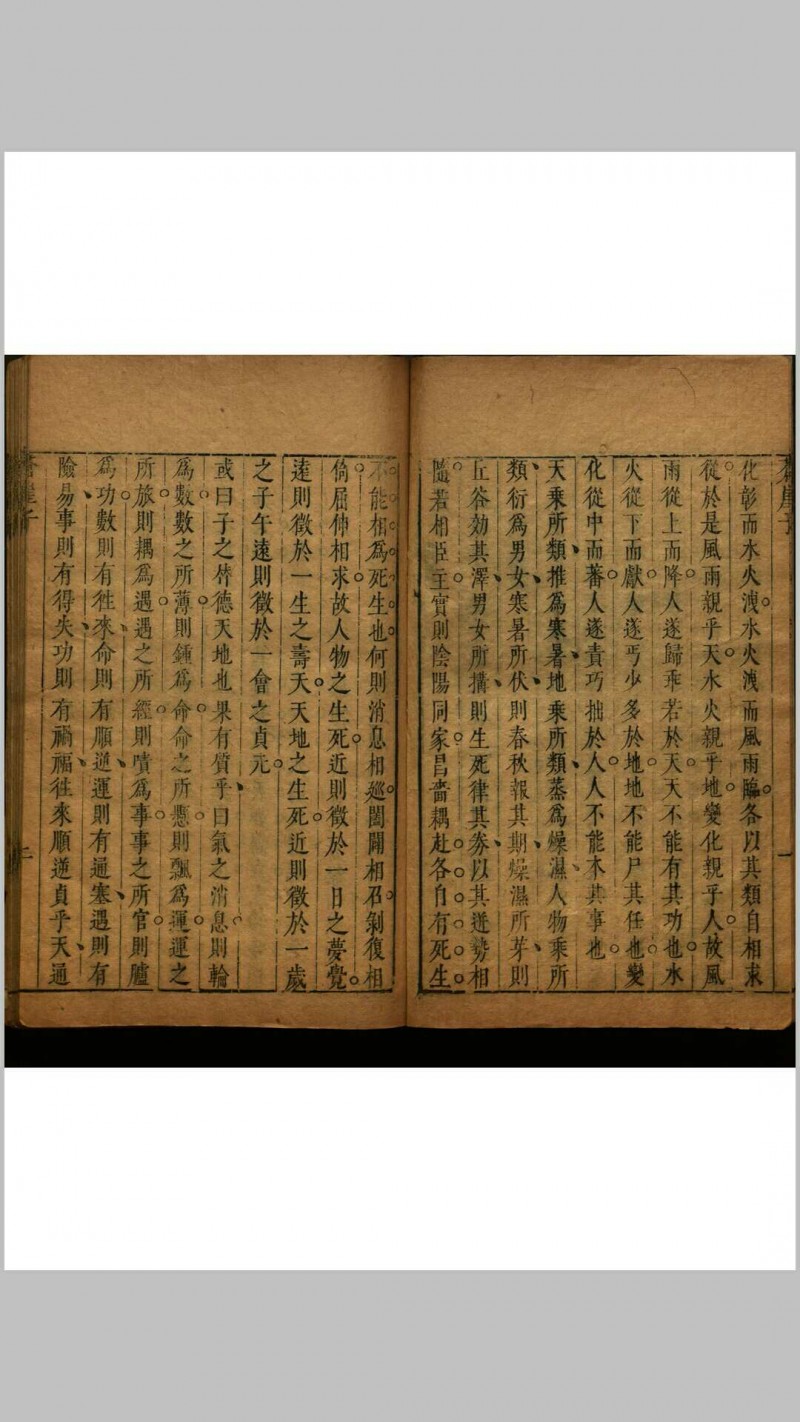 化彰而水火洩水火洩而風雨臨各以其類自相求
從於是風雨親乎天水火親乎地變化親乎人故風
雨從上而降人遂歸乖若於天天不能有其功也水
火從下而獻人遂丐少多於地地不能尸其任也變
化從中而蕃人遂責巧拙於人人不能木其事也
天乘所類推為寒暑地乘所類蒸為燥濕人物乘所
類衍為男女寒暑所伏則春秋報其期燥濕所芽則
丘谷効其澤男女所搆則生死律其劵以其迸勢相
隨若相臣主實則陰陽同家昌嗇耦赴各自有死生
不能相為死生也何則消息相廵闔闢相召剝復相
倚屈伸相求故人物之生死近則徵於一日之夢覺
遠則徵於一生之壽夭天地之生死近則徵於一歲
之子午遠則徵於一會之貞元
或曰子之替德天地也果有質乎曰氣之消息則輪
為數數之所薄則鍾為命命之所懸則飄為運運之
所旅則耦為遇遇之所經則嘖為事事之所官則臚
為功數則有徃來命則有順逆運則有通塞遇則有
險易事則有得失功則有禍福徃來順逆貞乎天通
崖子
二